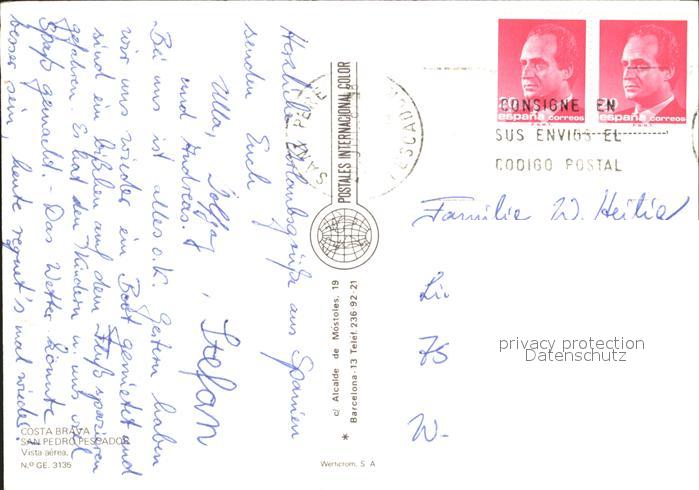 Herzliche Urlaubsgrüße aus Spanien
senden Euch
Ulla, Wolfgang, Stefan
und Andreas.
Bei uns ist alles o.k. Gestern haben
wir uns wieder ein Boot gemietet und
sind ein bißchen auf dem Fluß spazieren
gefahren. Es hat den Kindern u. uns viel
Spaß gemacht. - Das Wetter könnte
besser sein, heute regnet's mal wieder.
COSTA BRAVA
SAN PEDRO PESCADOR
Vista aérea.
N.º GE. 3135
POSTALES INTERNACIONAL COLOR
c/ Alcalde de Móstoles, 19
Barcelona-13 Teléf. 236-92-21
Wertcrom, S A
españa correos
F.N.M.T.
españa correos
F.N.M.T.
CONSIGNE EN
SUS ENVIOS EL
CODIGO POSTAL
Familie W.
75
W-
privacy protection
Datenschutz